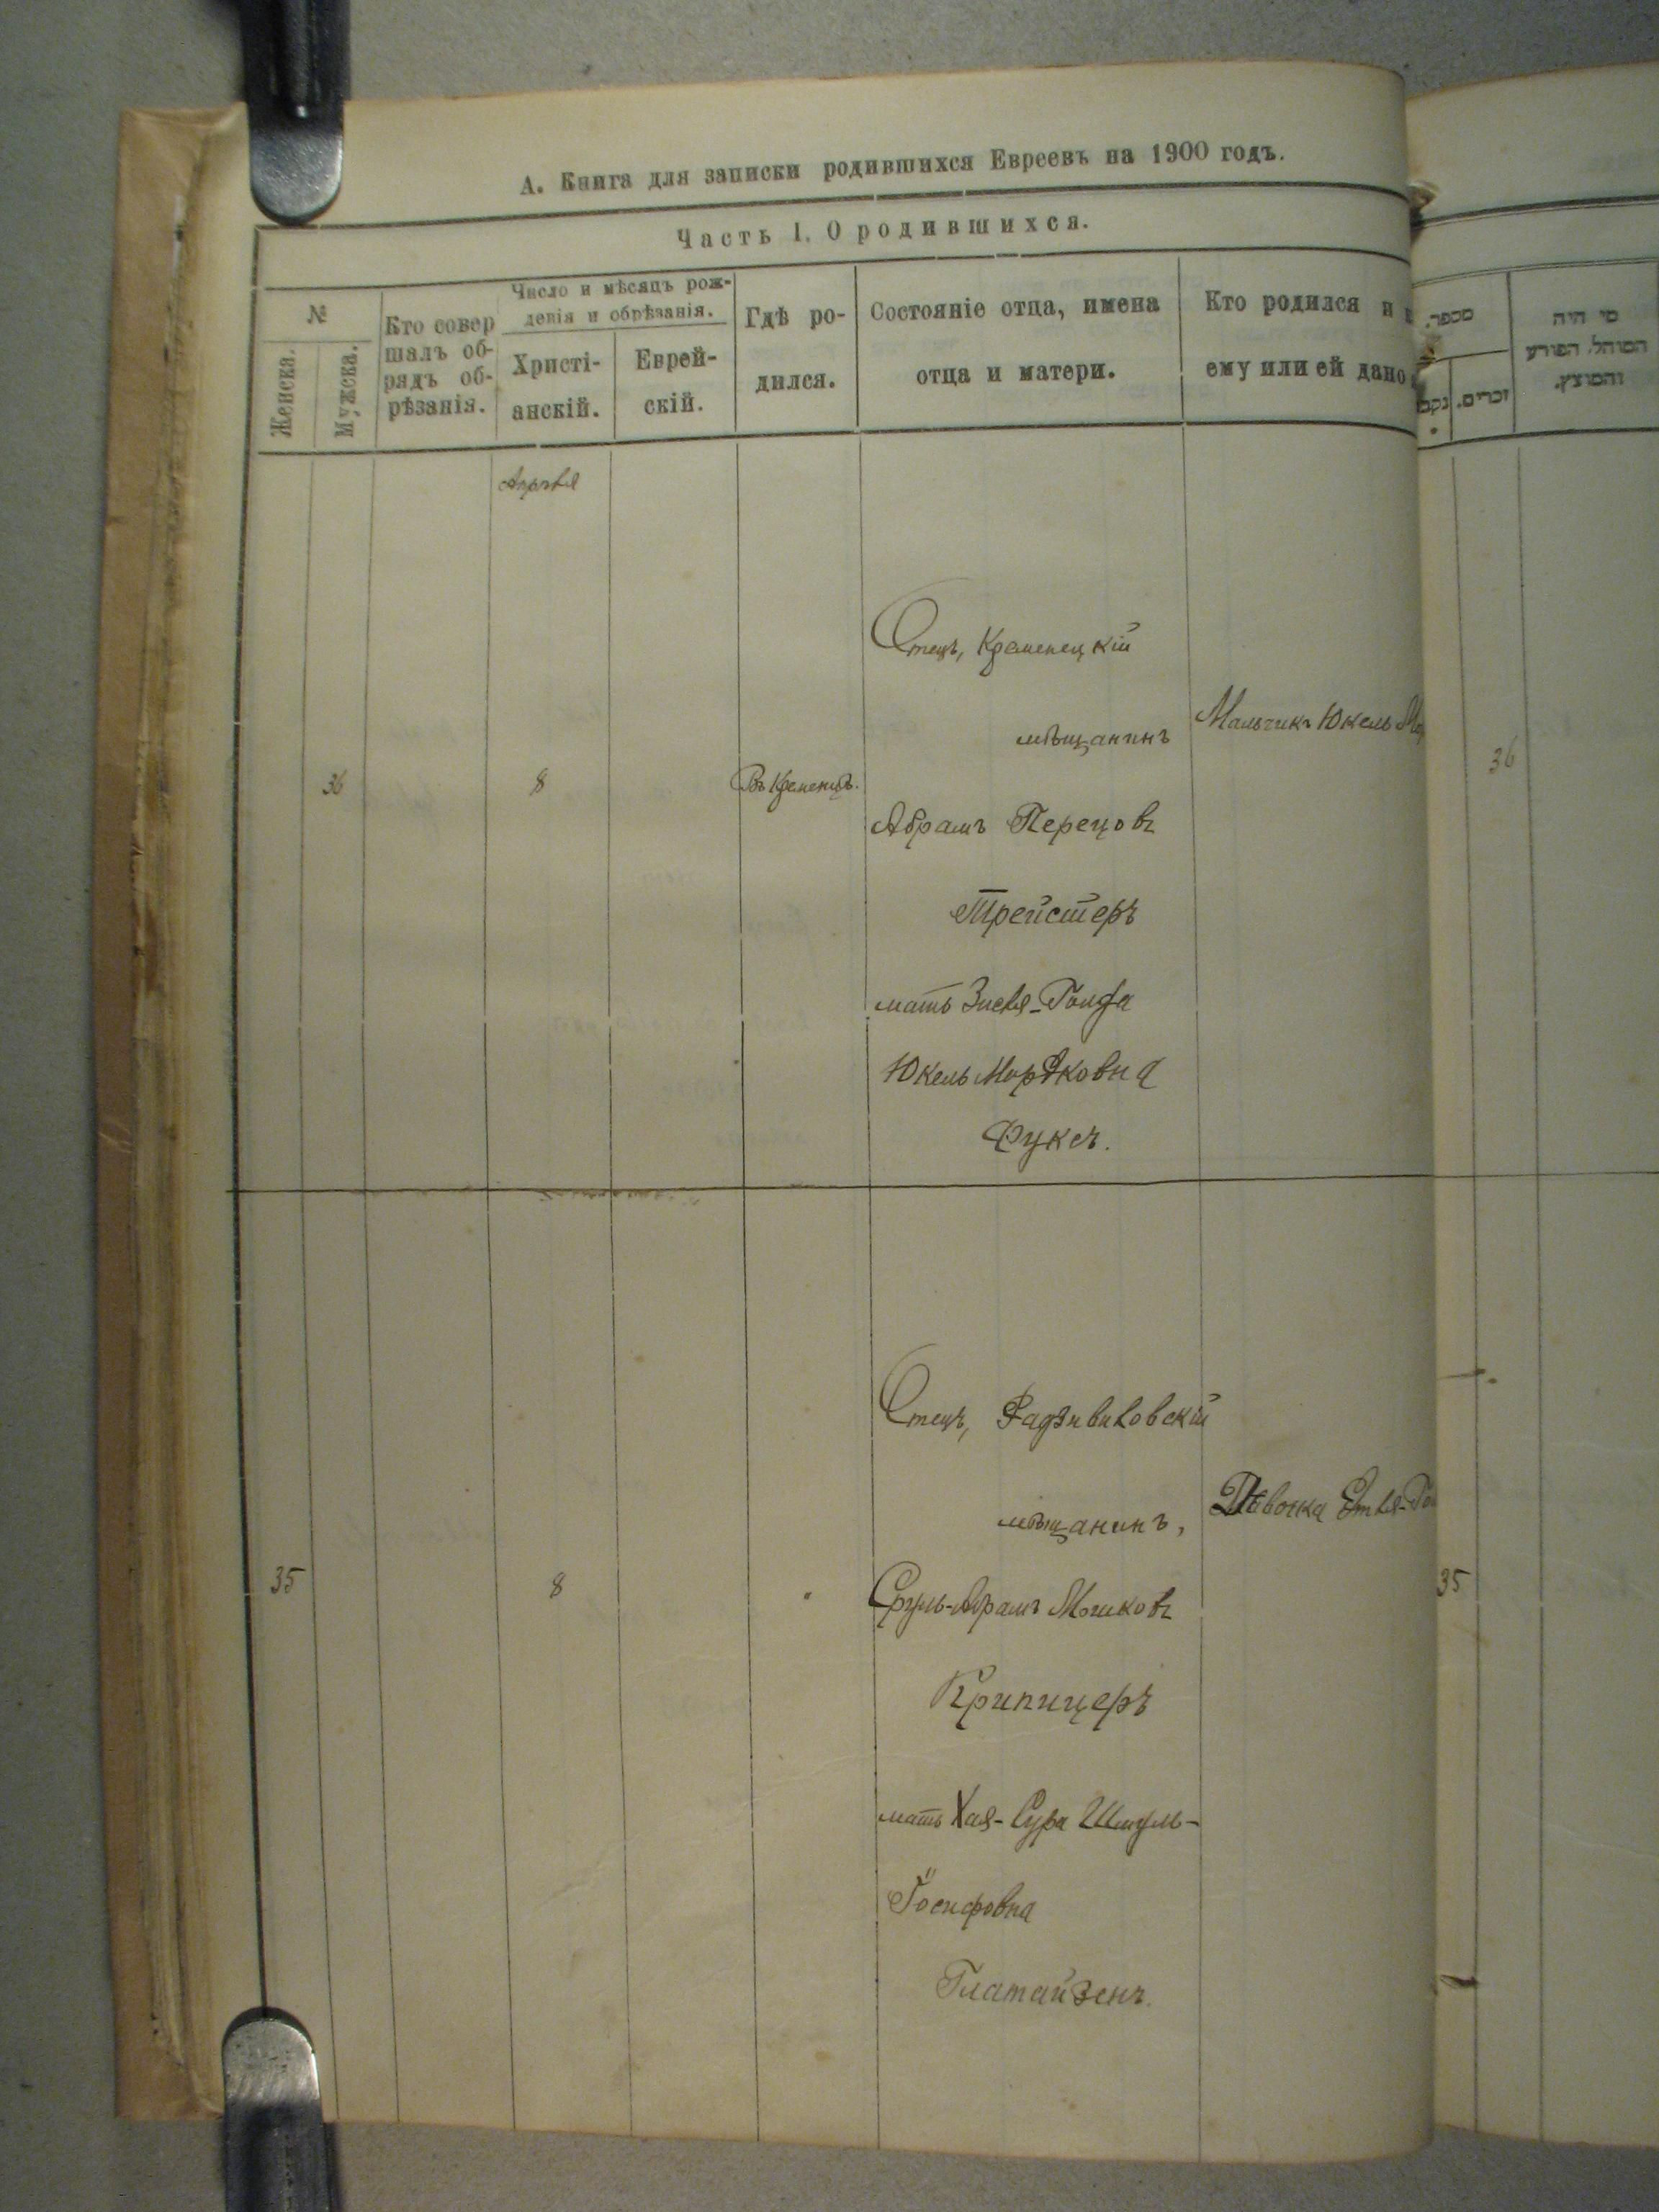 А. Книга для записки родившихся Евреевъ на 1900 годъ.
Часть I. О родившихся.
№
Женска.
Мужска.
Кто совер
шалъ об-
рядъ об-
рѣзанія.
Число и мѣсяцъ рож-
денія и обрѣзанія.
Христі-
анскій.
Еврей-
скій.
Гдѣ ро-
дился.
Состояніе отца, имена
отца и матери.
Кто родился и
ему или ей дано
מספר.
זכרים.
מי היה
המוהל. הפורע
והמוצץ.
Апрѣля
36
8
Въ Кременцѣ.
Отецъ, Кременецкій
мѣщанинъ
Абрамъ Перецовъ
Трейстеръ
мать Зисля-Гольда
Юкель Мордковна
Фуксъ.
Мальчикъ Юкель
36
35
8
"
Отецъ, Радзивиловскій
мѣщанинъ,
Сруль-Абрамъ Мошковъ
Крипицеръ
мать Хая-Сура Шмуль-
Іосифовна
Глатайзенъ.
Дѣвочка Етля
35